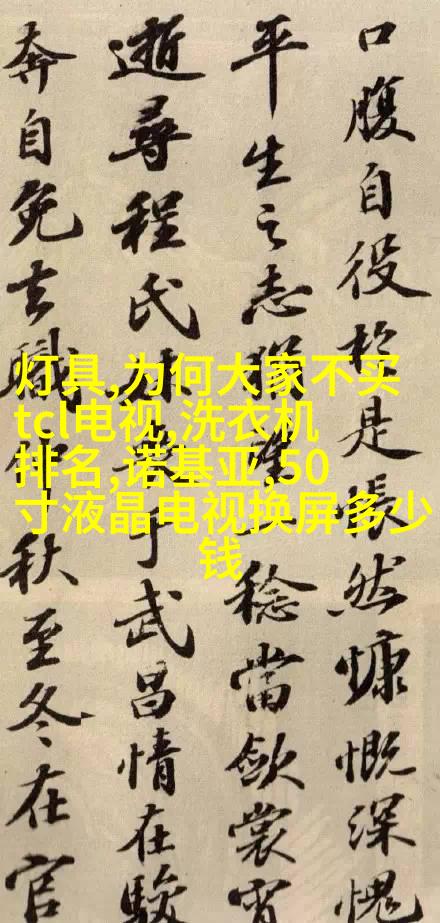 口腹自役於是悵然慷慨深愧
平生之志猶望一稔當斂裳宵
逝尋程氏妹喪于武昌情在駿
奔自免去職仲秋至冬在官
灯具,为何大家不买
tcl电视,洗衣机
排名,诺基亚,50
寸液晶电视换屏多少
钱